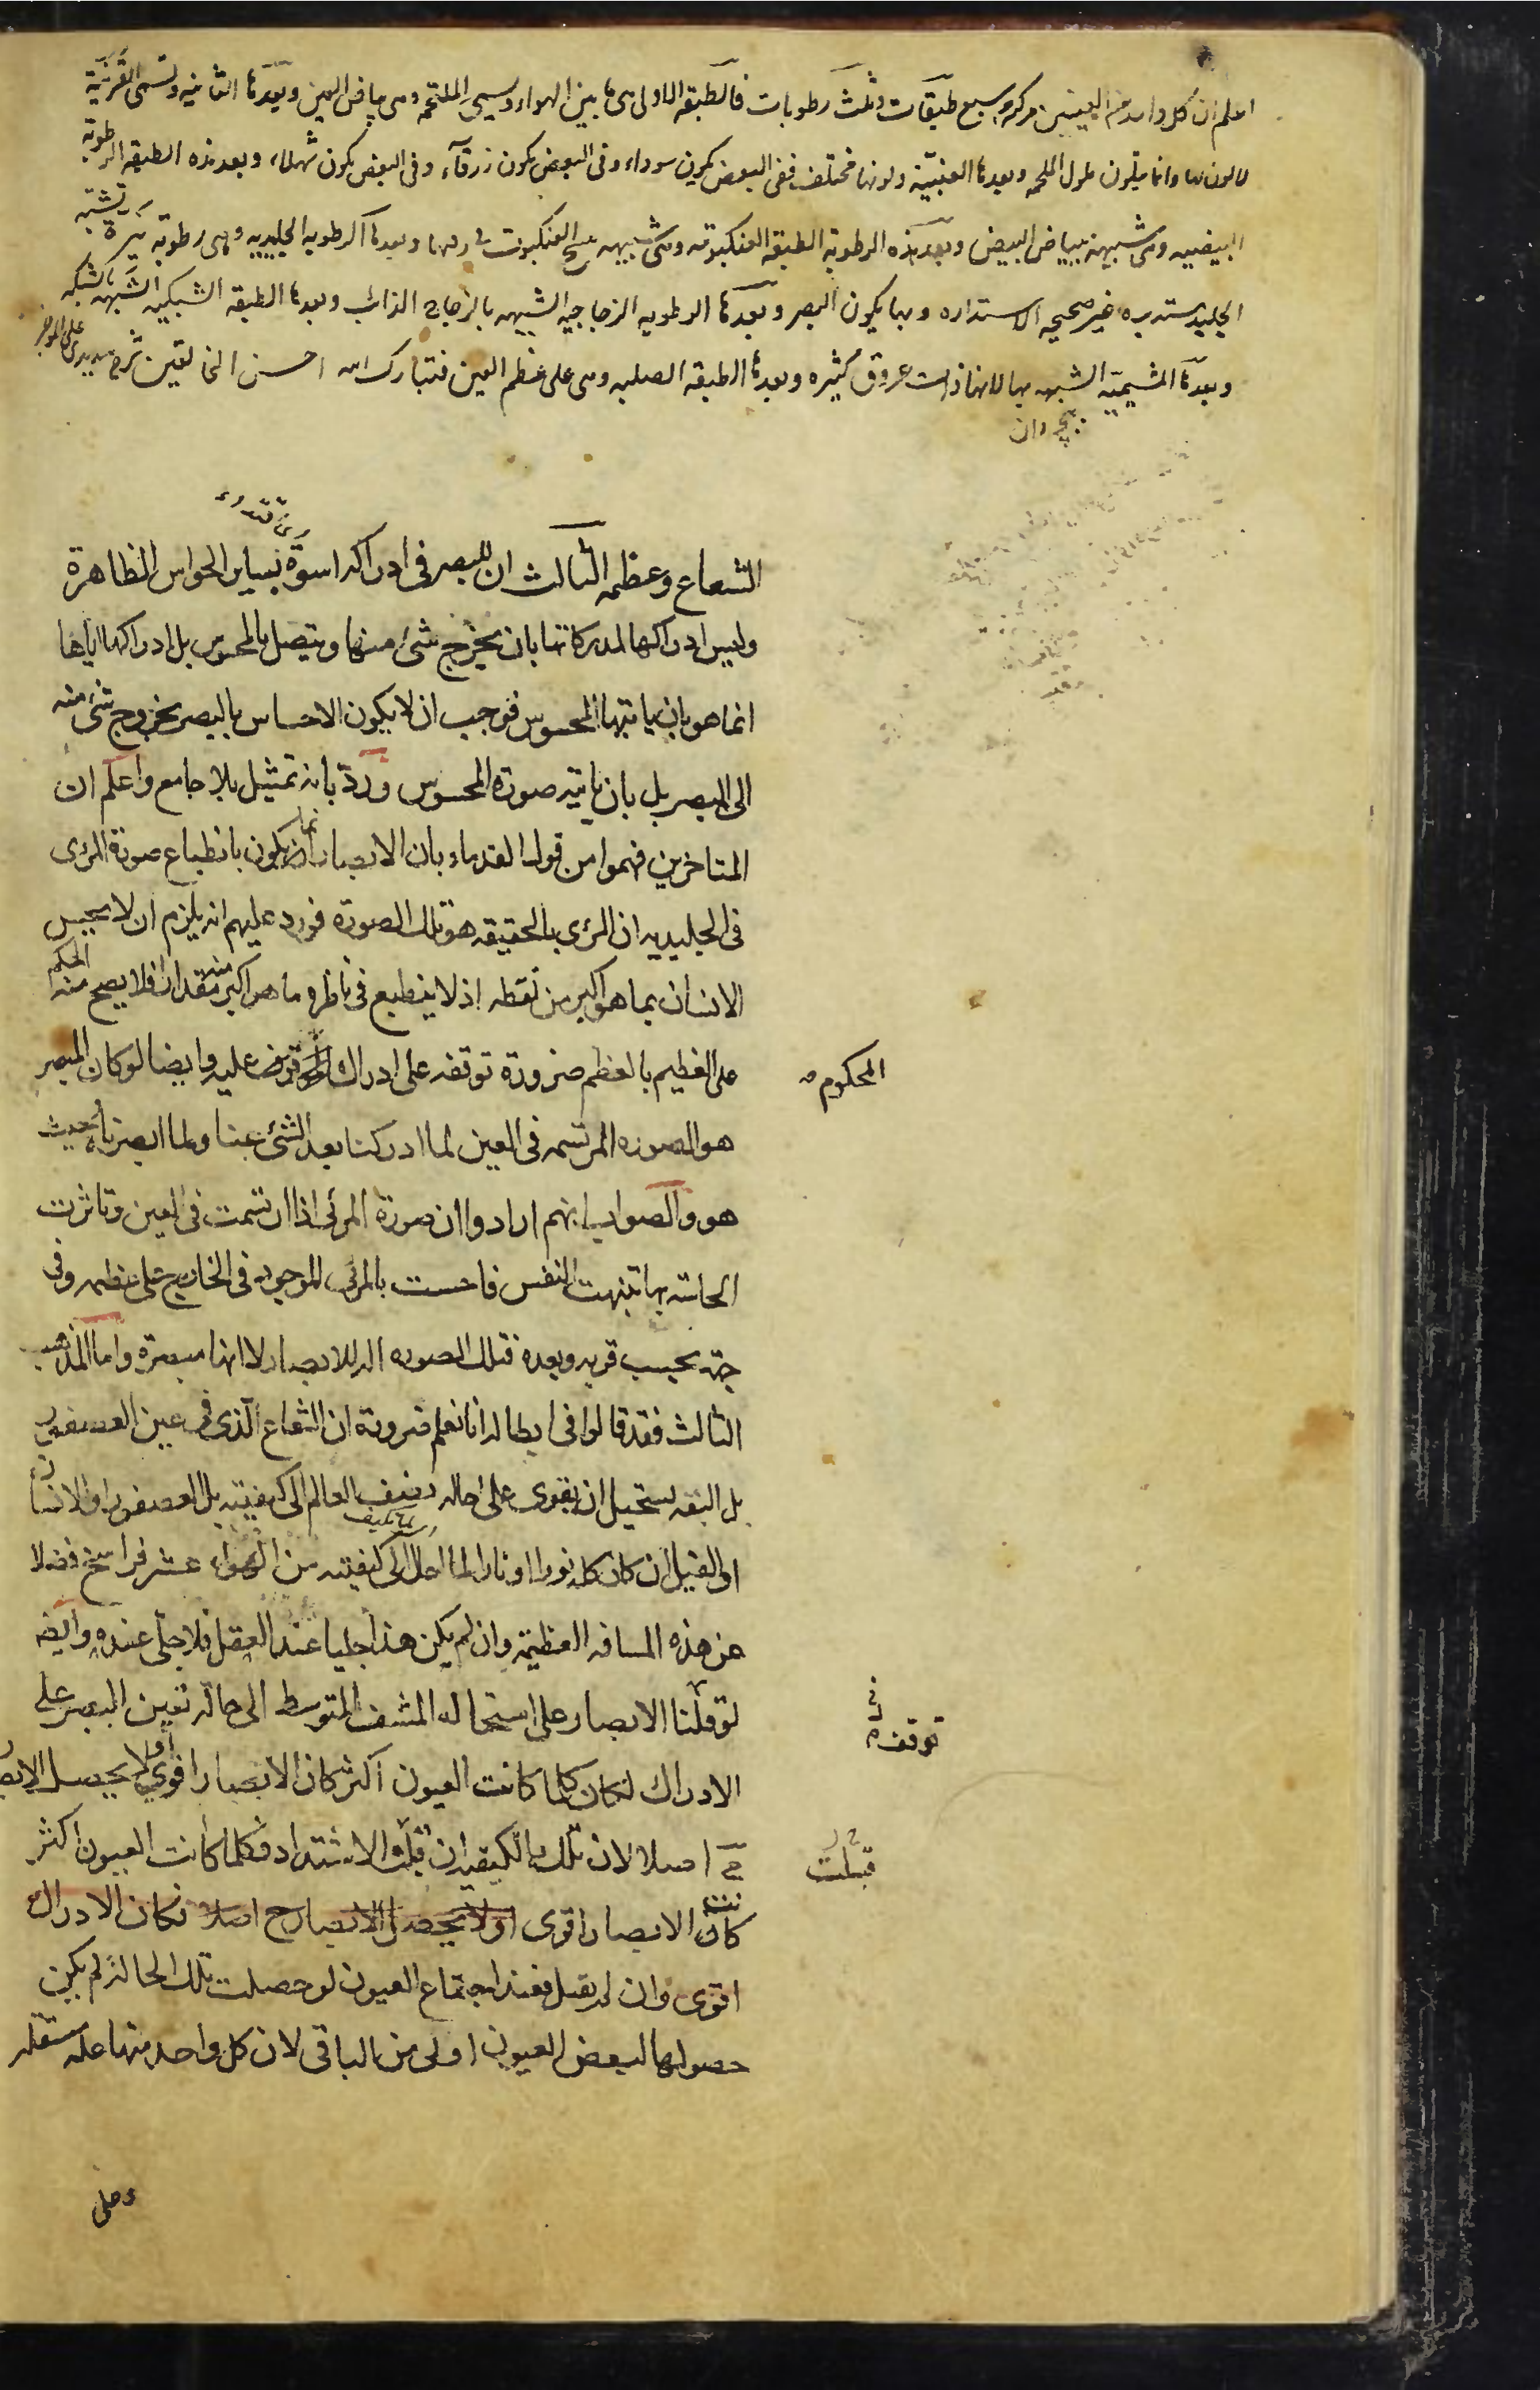 اعلم ان كل واحد من العينين مركبة من سبع طبقات وثلث رطوبات فالطبقة الاولى هى ما بين الهواء وسمى الملتحمة وهى بياض العين وبعدها الثانيه وتسمى القرنية
لا لون لها وانما يتلون بلون الملتحمه وبعدها العنبية ولونها مختلف ففى البعض يكون سوداء وفى البعض يكون زرقآء وفى البعض يكون شهلاء وبعد هذه الطبقه الرطوبة
البيضيه وهى شبيهة ببياض البيض وبعد هذه الرطوبة الطبقة العنكبوتيه وهى شبيهه بنسج العنكبوت وبعدها الرطوبه الجليديه وهى رطوبة نيرة تشبه
الجليد مستديره غير صحيحه الاستداره وبها يكون البصر وبعدها الرطوبه الزجاجيه الشبيهه بالزجاج الذائب وبعدها الطبقه الشبكيه الشبيهه بالشبكه
وبعدها المشيمية الشبيهه بها لانها ذات عروق كثيره وبعدها الطبقه الصلبه وهى على عظم العين فتبارك الله احسن الخالقين شرح
بچه دان
الشعاع وعظمه الثالث ان للبصر فى ادراكه اسوة بساير الحواس الظاهرة
وليس ادراكها لمدركاتها بان يخرج شئ منها ويتصل بالمحسوس بل ادراكها اياها
انما هو بان ياتيها المحسوس فوجب ان لا يكون الاحساس بالبصر بخروج شئ منه
الى المبصر بل بان ياتيه صورة المحسوس ورد بانه تمثيل بلا جامع واعلم ان
المتاخرين فهموا من قول القدماء بان الابصار انما يكون بانطباع صورة المرئى
فى الجليديه ان المرئى بالحقيقه هو تلك الصورة فورد عليهم انه يلزم ان لا يحس
الانسان بما هو اكبر من نقطه اذ لا ينطبع فى ناظره ما هو اكبر منه مقدارا فلا يصح منه الحكم
على العظيم بالعظم ضرورة توقفه على ادراك عليه وايضا لو كان المبصر
المحكوم
هو الصوره المرتسمه فى العين لما ادركنا بعد الشئ عنا ولما ابصرناه حيث
هو والصواب انهم ارادوا ان صورة المرئى اذا ارتسمت فى العين وتاثرت
الحاسه بها تنبهت النفس فاحست بالمرئى الموجود فى الخارج على عظمه وفى
جهته بحسب قربه وبعده فتلك الصوره اله للابصار لا انها مبصرة واما المذهب
الثالث فقد قالوا فى ابطاله انا نعلم ضرورة ان الشعاع الذى فى عين العصفور
بل البقه يستحيل ان يقوى على احاله نصف العالم الى كيفيته بل العصفور او الانسان
او الفيل ان كان كله نورا او نارا لما احال الى كيفيته من الهواء عشر فراسخ فضلا
عن هذه المسافه العظيمة وان لم يكن هذا جليا عند العقل فلا جلى عنده وايضا
لو قلنا الابصار على استحاله المشف المتوسط الى حاله تعين البصر على
توقف
الادراك لكان كلما كانت العيون اكثر كان الابصار اقوى او لا يحصل الابصار
ح اصلا لان تلك الكيفيه ان قبلت الاشتداد فكلما كانت العيون اكثر
قبلت
كان الابصار اقوى او لا يحصل الابصار ح اصلا فكان الادراك
اقوى وان لم تقبل فعند اجتماع العيون لو حصلت تلك الحالة لم يكن
حصولها لبعض العيون اولى من الباقى لان كل واحد منها عله مستقله